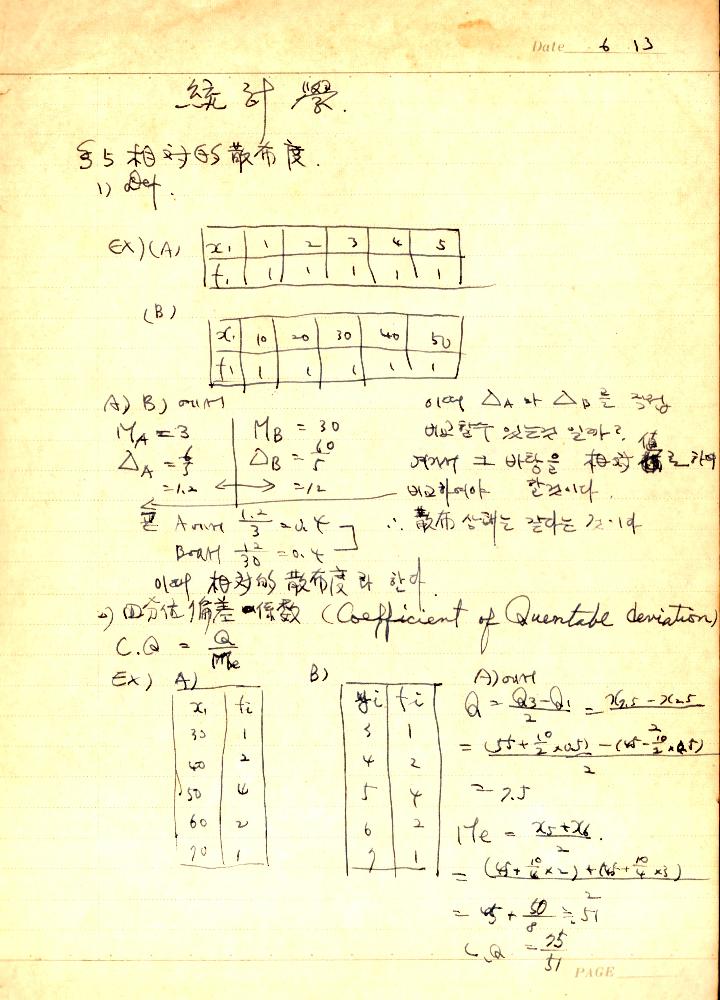 Date 6 13
統計學.
§5 相対的 散布度.
1) Def.
EX) (A)
xi 1 2 3 4 5
fi 1 1 1 1 1
(B)
xi 10 20 30 40 50
fi 1 1 1 1 1
A) B) 에서
MA = 3
MB = 30
ΔA = 6/5
ΔB = 60/5
= 1.2 ⟷ = 12
이때 ΔA 와 ΔB 를 직접
비교할수 있는것 일까?
여기서 그 바탕을 相対値로 하여
비교하여야 할것이다.
∴ 散布 상태는 같다는 것이다
A에서 1.2/3 = 0.4
B에서 12/30 = 0.4
이때 相対的 散布度라 한다.
2) 四分位偏差 係数 (Coefficient of Quentable deviation)
C.Q = Q/Me
EX) A)
xi fi
30 1
40 2
50 4
60 2
70 1
B)
yi fi
3 1
4 2
5 4
6 2
7 1
A)에서
Q = (Q3 − Q1)/2 = (x7.5 − x2.5)/2
= ((55 + 10/2 × 0.5) − (45 − 10/2 × 0.5))/2
= 7.5
Me = (x5 + x6)/2.
= ((45 + 10/4 × 2) + (45 + 10/4 × 3))/2
= 45 + 50/8 ≒ 51
C.Q = 7.5/51
PAGE